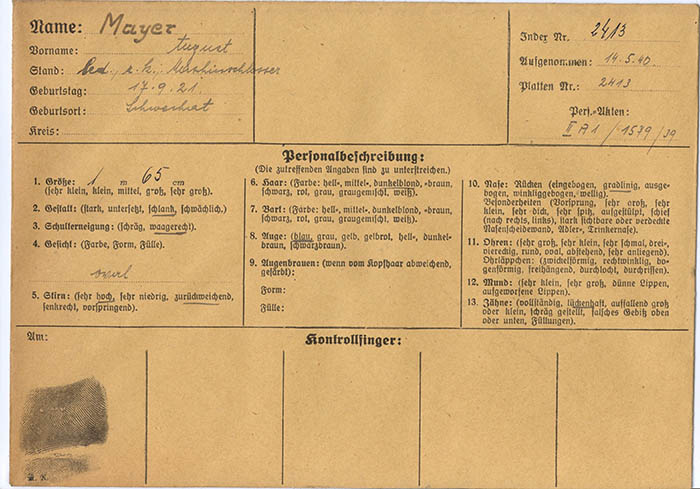 Name: Mayer
Vorname: August
Stand: led., r.k., Maschinschlosser
Geburtstag: 17.9.21.
Geburtsort: Schwechat
Kreis:
Index Nr. 2413
Aufgenommen: 14.5.40.
Platten Nr.: 2413
Pers.-Akten:
II A 1 / 1539 / 39
Personalbeschreibung:
(Die zutreffenden Angaben sind zu unterstreichen.)
1. Größe: 1 m 65 cm
(sehr klein, klein, mittel, groß, sehr groß).
2. Gestalt: (stark, untersetzt, schlank, schwächlich.)
3. Schulterneigung: (schräg, waagerecht).
4. Gesicht: (Farbe, Form, Fülle).
oval
5. Stirn: (sehr hoch, sehr niedrig, zurückweichend,
senkrecht, vorspringend).
6. Haar: (Farbe: hell-, mittel-, dunkelblond, -braun,
schwarz, rot, grau, graugemischt, weiß).
7. Bart: (Farbe: hell-, mittel-, dunkelblond, -braun,
schwarz, rot, grau, graugemischt, weiß).
8. Auge: (blau, grau, gelb, gelbrot, hell-, dunkel-
braun, schwarzbraun).
9. Augenbrauen: (wenn vom Kopfhaar abweichend,
gefärbt):
Form:
Fülle:
10. Nase: Rücken (eingebogen, gradlinig, ausge-
bogen, winkliggebogen, wellig).
Besonderheiten (Vorsprung, sehr groß, sehr
klein, sehr dick, sehr spitz, aufgestülpt, schief
(nach rechts, links), stark sichtbare oder verdeckte
Nasenscheidewand, Adler-, Trinkernase).
11. Ohren: (sehr groß, sehr klein, sehr schmal, drei-,
viereckig, rund, oval, abstehend, sehr anliegend).
Ohrläppchen: (zwickelförmig, rechtwinklig, bo-
genförmig, freihängend, durchlocht, durchrissen).
12. Mund: (sehr klein, sehr groß, dünne Lippen,
aufgeworfene Lippen).
13. Zähne: (vollständig, lückenhaft, auffallend groß
oder klein, schräg gestellt, falsches Gebiß oben
oder unten, Füllungen).
Am:
Kontrollfinger: